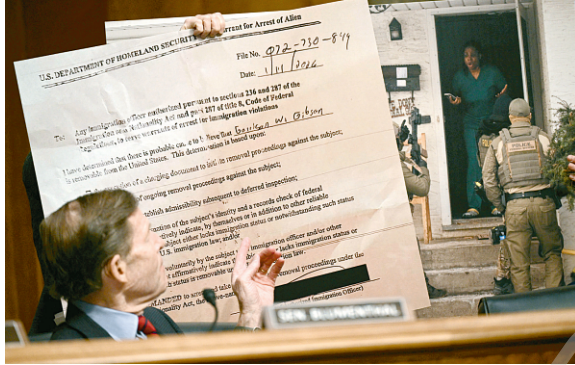 U.S. DEPARTMENT OF HOMELAND SECURITY Warrant for Arrest of Alien
File No. 072-730-849
Date:
To: Any immigration officer authorized pursuant to sections 236 and 287 of the
Immigration and Nationality Act and part 287 of title 8, Code of Federal
Regulations, to serve warrants of arrest for immigration violations
I have determined that there is probable cause to believe that Gibson
is removable from the United States. This determination is based upon:
of a charging document to initiate removal proceedings against the subject;
of ongoing removal proceedings against the subject;
establish admissibility subsequent to deferred inspection;
of the subject's identity and a records check of federal
indicate, by themselves or in addition to other reliable
subject either lacks immigration status or notwithstanding such status
U.S. immigration law; and/or
voluntarily by the subject immigration officer and/or other
affirmatively indicate lacks immigration status or
status is removable un law.
MANDED to arrest and take removal proceedings under the
Immigration Officer)
SEN. BLUMENTHAL